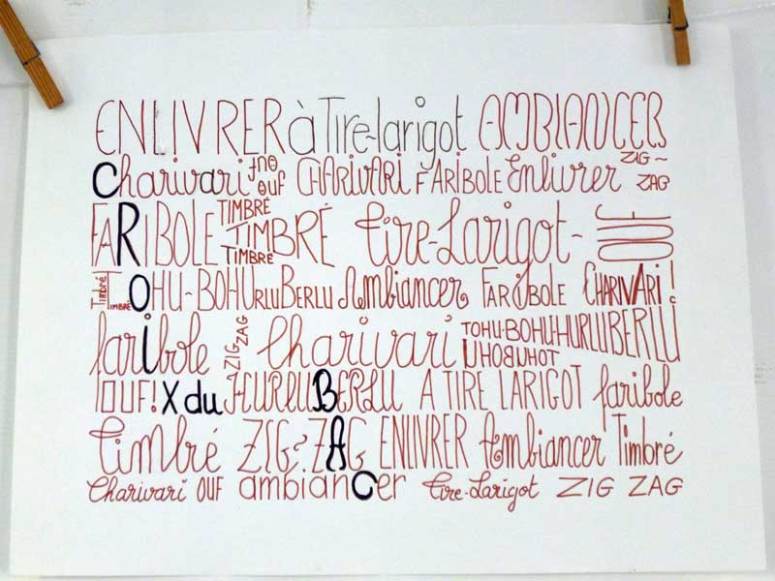 ENLIVRER à Tire-larigot AMBIANCER
Charivari OUF OUF CHARIVARI FARIBOLE Enlivrer ZIG- ZAG
FARIBOLE TIMBRÉ TIMBRÉ TIMBRÉ Tire-Larigot- OUF
Timbré TIMBRÉ TOHU-BOHU HURLUBERLU Ambiancer FARIBOLE CHARIVARI!
faribole ZIG ZAG Charivari TOHU-BOHU-HURLUBERLU TOHUBOHU
OUF! X du HURLUBERLU A TIRE LARIGOT faribole
Timbré ZIG-ZAG ENLIVRER Ambiancer Timbré
Charivari OUF ambianCer Tire-Larigot ZIG ZAG